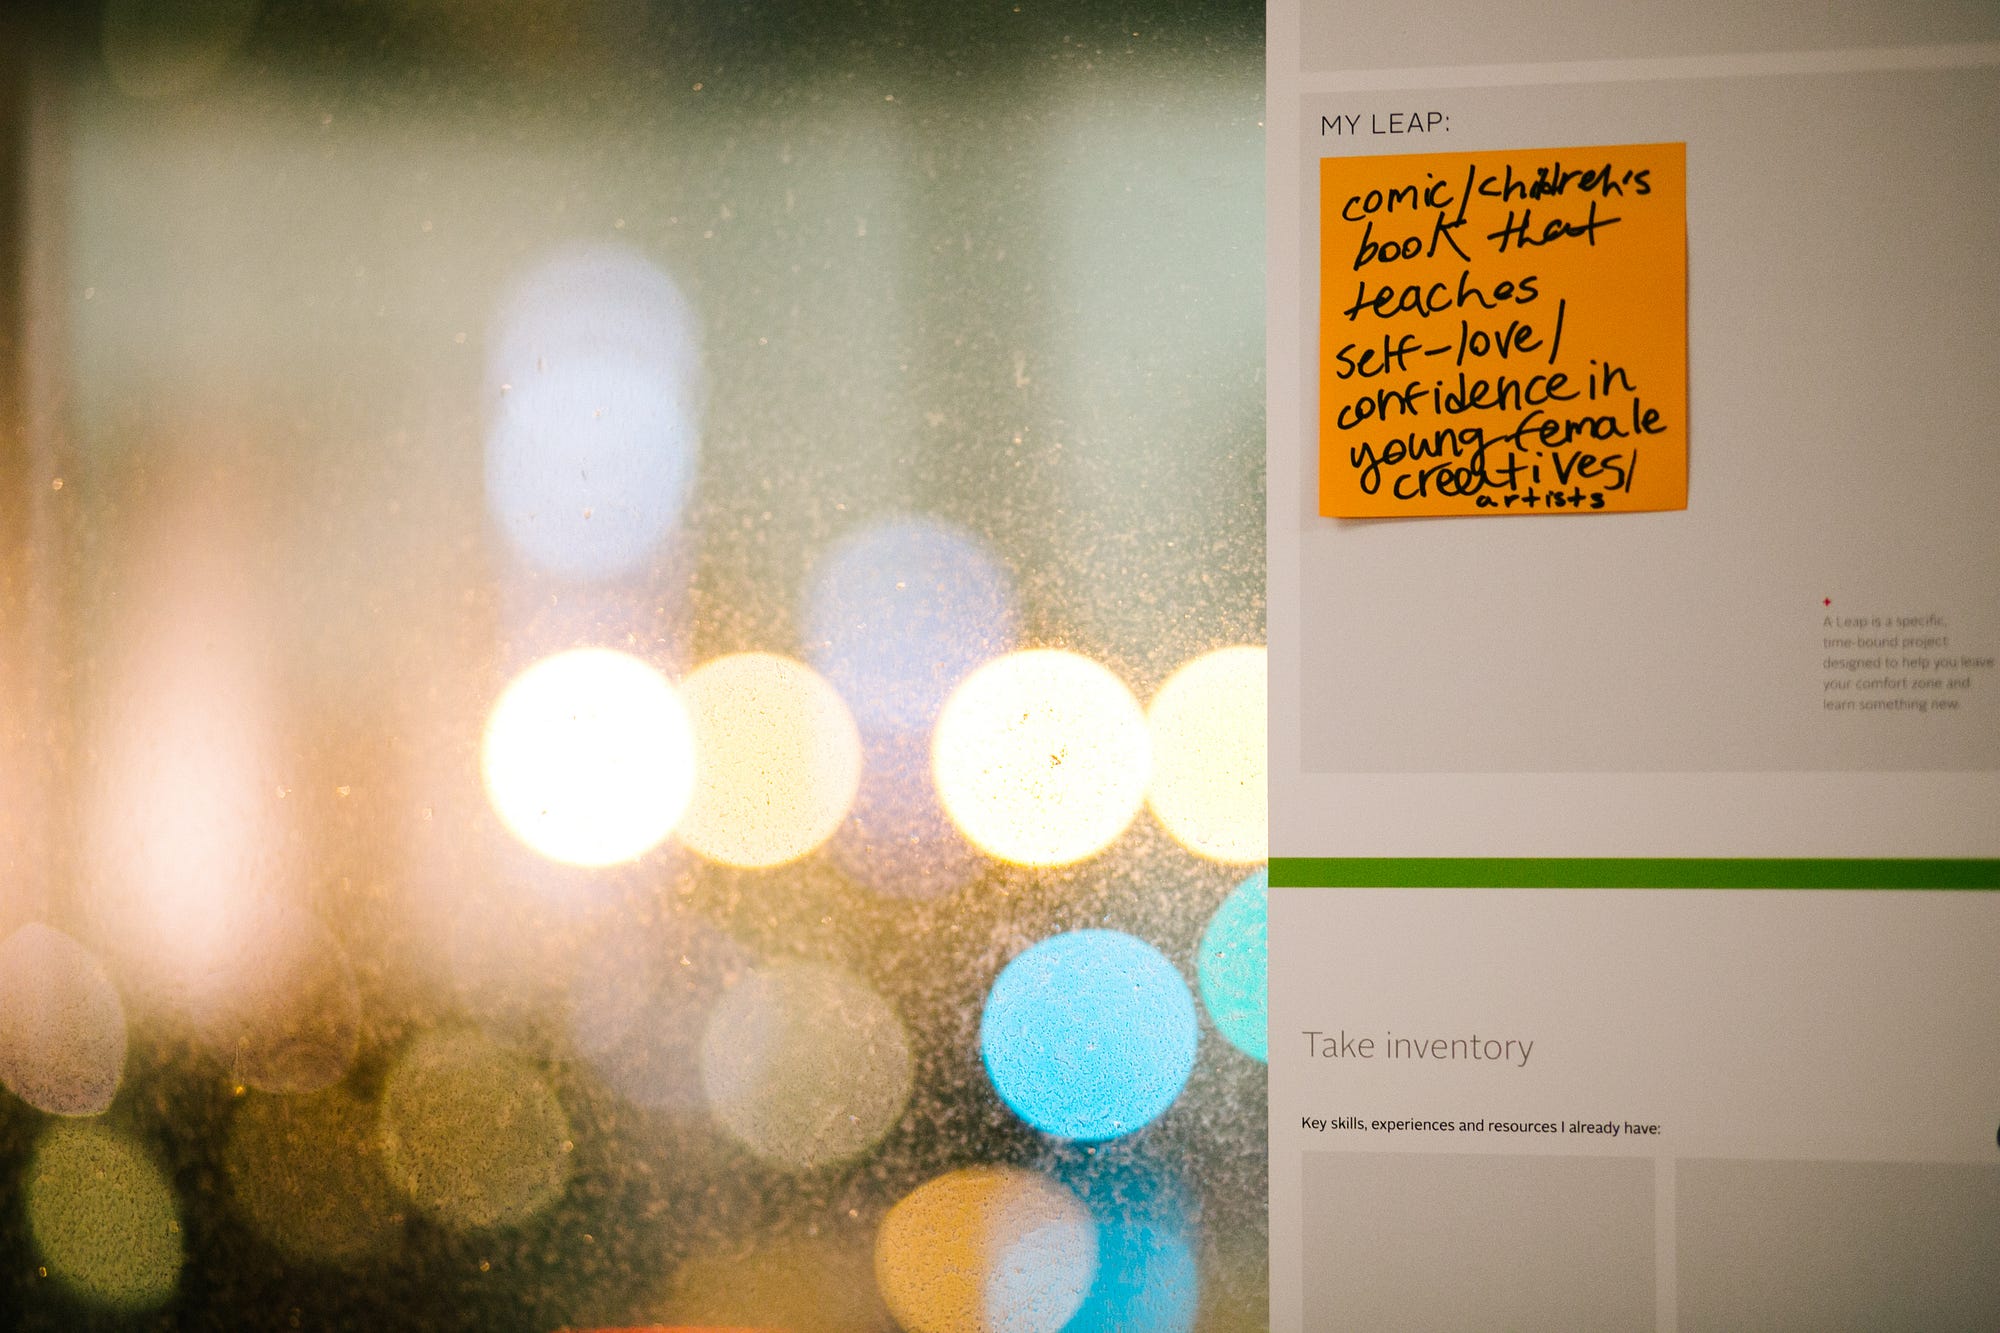 MY LEAP:
comic/children's
book that
teaches
self-love/
confidence in
young female
creatives/
artists
A Leap is a specific,
time-bound project
designed to help you leave
your comfort zone and
learn something new.
Take inventory
Key skills, experiences and resources I already have: